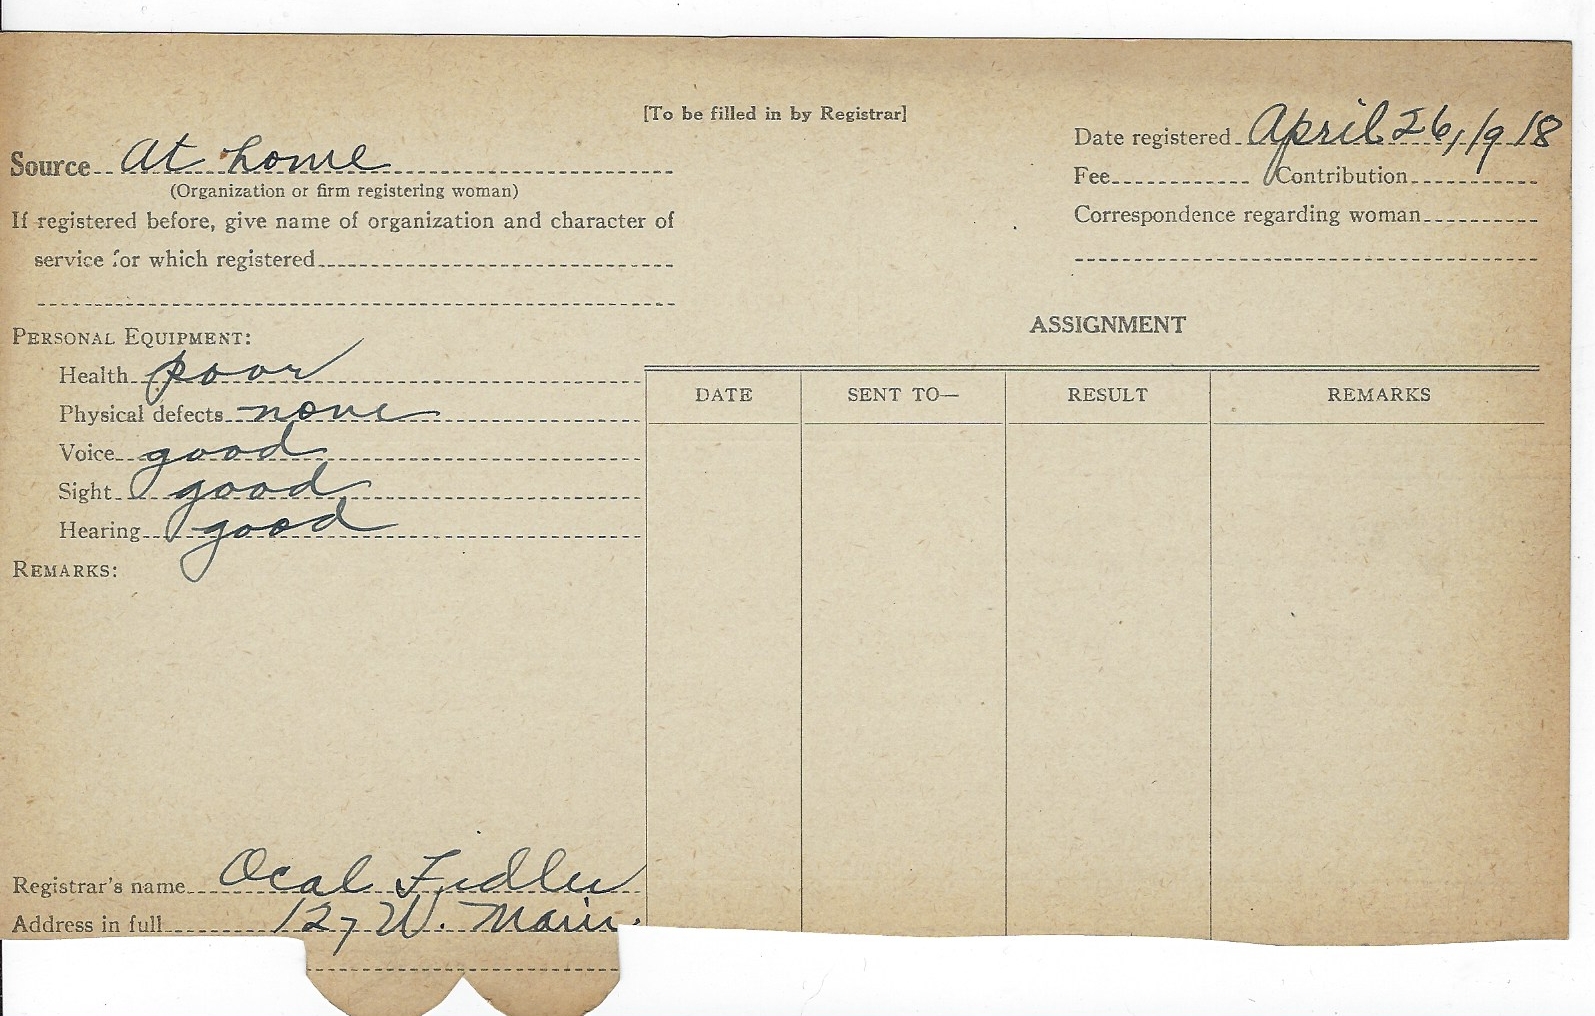 [To be filled in by Registrar]
Source at home
(Organization or firm registering woman)
If registered before, give name of organization and character of
service for which registered
Date registered April 26, 1918
Fee Contribution
Correspondence regarding woman
PERSONAL EQUIPMENT:
Health poor
Physical defects none
Voice good
Sight good
Hearing good
REMARKS:
ASSIGNMENT
DATE SENT TO— RESULT REMARKS
Registrar's name Ocal Fidler
Address in full 127 W. Main.